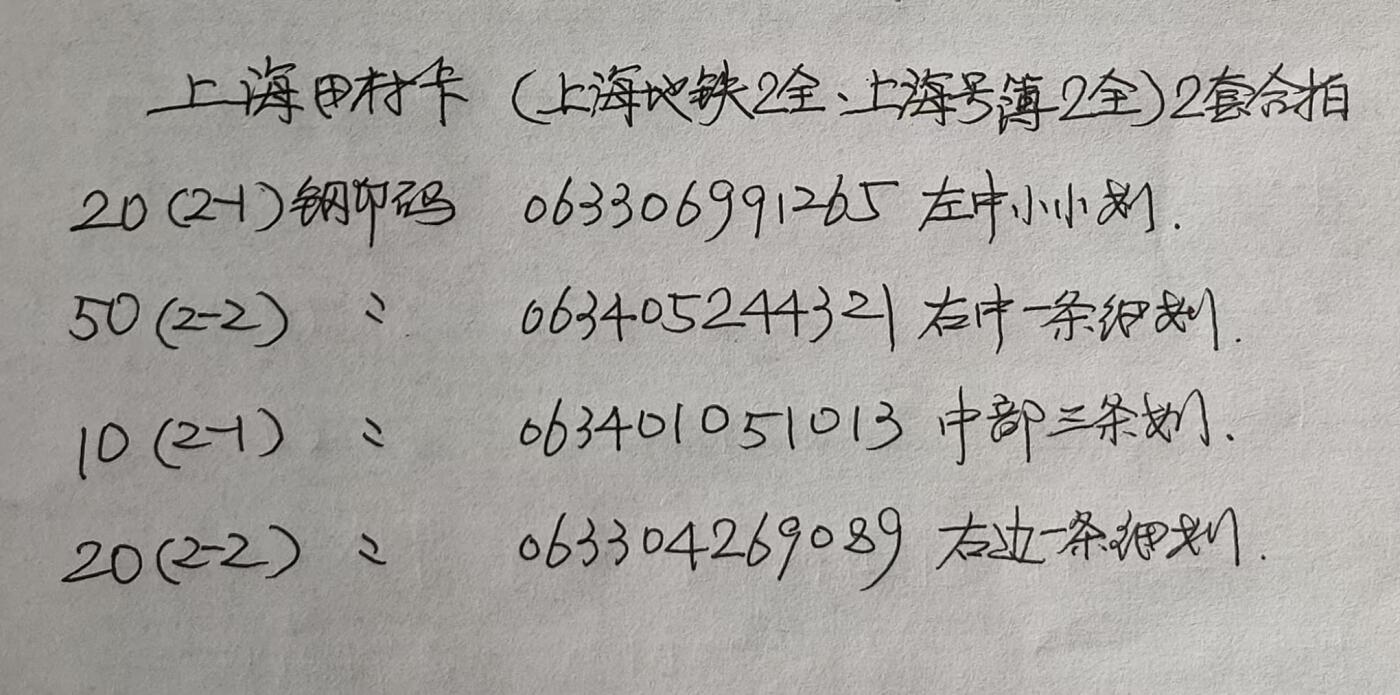 上海田村卡（上海地铁2全、上海号簿2全）2套合拍
20（2-1）钢印码 063306991265 左中小小划.
50（2-2） 〃 063405244321 右中一条细划.
10（2-1） 〃 063401051013 中部三条划.
20（2-2） 〃 063304269089 右边一条细划.